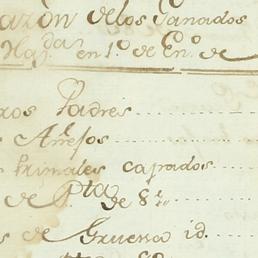 azón de los Ganados
Haz.das en 1.º de En.º de
ros Padres
s Añejos
s Primales capados
de P.ta de 8
s de Gruesa id.